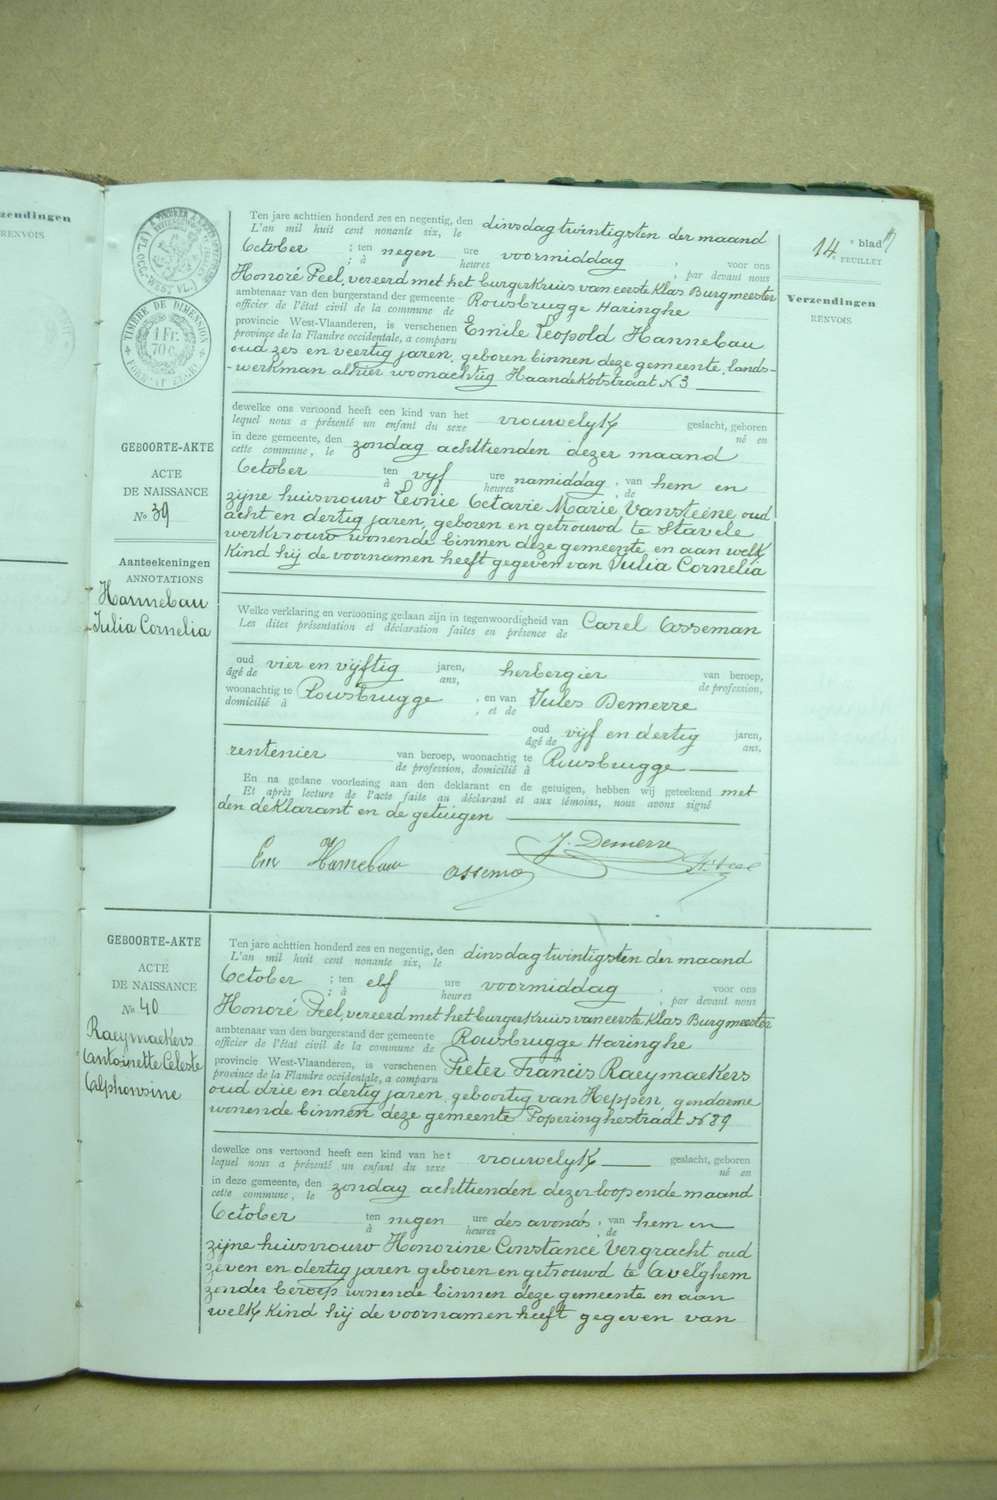 zendingen
RENVOIS
TIMBRE DE DIMENSION
1 Fr.
70 c.
14e blad
FEUILLET
Verzendingen
RENVOIS
GEBOORTE-AKTE
ACTE
DE NAISSANCE
No 39
Aanteekeningen
ANNOTATIONS
Hannebau
Julia Cornelia
Ten jare achttien honderd zes en negentig, den dinsdag twintigsten der maand
L'an mil huit cent nonante six, le
October ; ten negen ure voormiddag , voor ons
; à heures , par devant nous
Honoré Peel, vereerd met het burgerkruis van eerste klas Burgmeester
ambtenaar van den burgerstand der gemeente Rousbrugge Haringhe
officier de l'état civil de la commune de
provincie West-Vlaanderen, is verschenen Emile Leopold Hannebau
province de la Flandre occidentale, a comparu
oud zes en veertig jaren, geboren binnen deze gemeente, lands-
-werkman alhier woonachtig Haandekotstraat N 3
dewelke ons vertoond heeft een kind van het vrouwelyk geslacht, geboren
lequel nous a présenté un enfant du sexe né en
in deze gemeente, den zondag achttienden dezer maand
cette commune, le
October ten vyf ure namiddag , van hem en
à heures , de
zijne huisvrouw Leonie Octavie Marie Vansteene oud
acht en dertig jaren, geboren en getrouwd te Stavele
werkvrouw wonende binnen deze gemeente en aan welk
kind hij de voornamen heeft gegeven van Julia Cornelia
Welke verklaring en vertooning gedaan zijn in tegenwoordigheid van Carel Asseman
Les dites présentation et déclaration faites en présence de
oud vier en vijftig jaren, herbergier van beroep,
âgé de ans, de profession,
woonachtig te Rousbrugge , en van Jules Demerre
domicilié à , et de
oud vijf en dertig jaren,
âgé de ans,
rentenier van beroep, woonachtig te Rousbrugge
de profession, domicilié à
En na gedane voorlezing aan den deklarant en de getuigen, hebben wij geteekend met
Et après lecture de l'acte faite au déclarant et aux témoins, nous avons signé
den deklarant en de getuigen
Em Hannebau
J. Demerre
GEBOORTE-AKTE
ACTE
DE NAISSANCE
No 40
Raeymaekers
Antoinette Celeste
Alphonsine
Ten jare achttien honderd zes en negentig, den dinsdag twintigsten der maand
L'an mil huit cent nonante six, le
October ; ten elf ure voormiddag , voor ons
; à heures , par devant nous
Honoré Peel, vereerd met het burgerkruis van eerste klas Burgmeester
ambtenaar van den burgerstand der gemeente Rousbrugge Haringhe
officier de l'état civil de la commune de
provincie West-Vlaanderen, is verschenen Pieter Francis Raeymaekers
province de la Flandre occidentale, a comparu
oud drie en dertig jaren, geboortig van Heppen, gendarme
wonende binnen deze gemeente Poperinghestraat N 89
dewelke ons vertoond heeft een kind van het vrouwelyk geslacht, geboren
lequel nous a présenté un enfant du sexe né en
in deze gemeente, den zondag achttienden dezer loopende maand
cette commune, le
October ten negen ure des avonds , van hem en
à heures , de
zijne huisvrouw Honorine Constance Vergracht oud
zeven en dertig jaren geboren en getrouwd te Avelghem
zonder beroep wonende binnen deze gemeente en aan
welk kind hij de voornamen heeft gegeven van